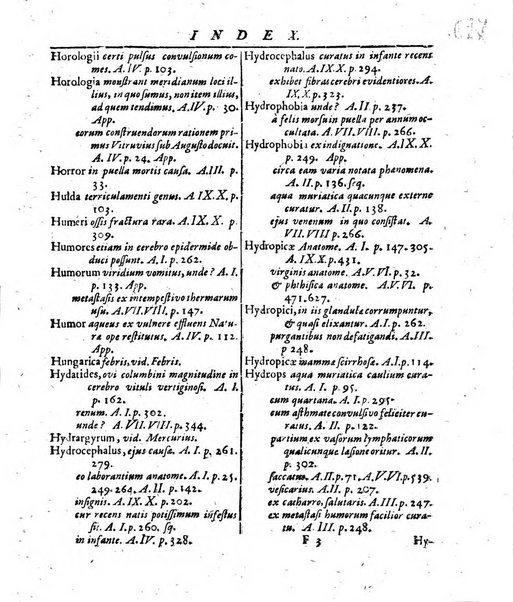 INDEX.
Horologii certi pulsus convulsionum co-
mes. A. IV. p. 103.
Horologia monstrant meridianum loci il-
lius, in quo sumus, non item illius,
ad quem tendimus. A. IV. p. 30.
App.
eorum construendorum rationem pri-
mus Vitruvius sub Augusto docuit.
A. IV. p. 24. App.
Horror in puella mortis causa. A. I. p.
33.
Hulda terriculamenti genus. A. IX. X. p.
103.
Humeri ossis fractura rara. A. IX. X. p.
309.
Humores etiam in cerebro epidermide ob-
duci possunt. A. I. p. 262.
Humorum viridium vomitus, unde? A. I.
p. 133. App.
metastasis ex intempestivo thermarum
usu. A. VII. VIII. p. 147.
Humor aqueus ex vulnere effluens Na-
ra ope restitutus. A. IV. p. 112.
App.
Hungarica febris, vid. Febris.
Hydatides, ovi columbini magnitudine in
cerebro vituli vertiginosi. A. I.
p. 162.
renum. A. I. p. 302.
unde? A. VII. VIII. p. 344.
Hydrargyrum, vid. Mercurius.
Hydrocephalus, ejus causa. A. I. p. 261.
279.
eo laborantium anatome. A. I. p. 25.
249-264. A. II. p. 142.
insignis. A. IX. X. p. 202.
cur recens natis potissimum infestus
sit. A. I. p. 260. sq.
in infante. A. IV. p. 328.
Hydrocephalus curatus in infante recens
nato. A. IX. X. p. 294.
exhibet fibras cerebri evidentiores. A.
IX. p. 323.
Hydrophobia unde? A. II. p. 237.
à felis morsu in puella per annum oc-
cultata. A. VII. VIII. p. 266.
Hydrophobia ex indignatione. A. IX. X.
p. 249. App.
circa eam varia notata phænomena.
A. II. p. 136. sq.
aqua muriatica quacunque externe
curatur. A. II. p. 138.
ejus venenum in quo consistat. A.
VII. VIII p. 266.
Hydropicæ Anatome. A. I. p. 147. 305.
A. IX. X. p. 431.
virginis anatome. A. V. VI. p. 32.
& phthisica anatome. A. V. VI. p.
471. 627.
Hydropici, in iis glandulæ corrumpuntur,
& quasi elixantur. A. I. p. 262.
purgantibus non defatigandi. A. III.
p 248.
Hydropicæ mammæ scirrhosæ. A. I. p. 114.
Hydrops aqua muriatica caulium cura-
tus. A. I. p. 95.
cum quartana. A. I. p. 295.
cum asthmate convulsivo feliciter cu-
ratus. A. I. p. 122.
partium ex vasorum lymphaticorum
qualicunque læsione oritur. A. II.
p. 302.
saccatus. A. II. p. 71. A. V. VI. p. 539.
vesicarius. A. II. p. 207.
ex catharro, salutaris. A. III. p. 247.
ex metastasi humorum facilior cura-
tu. A. III. p. 248.
F 3 Hy-